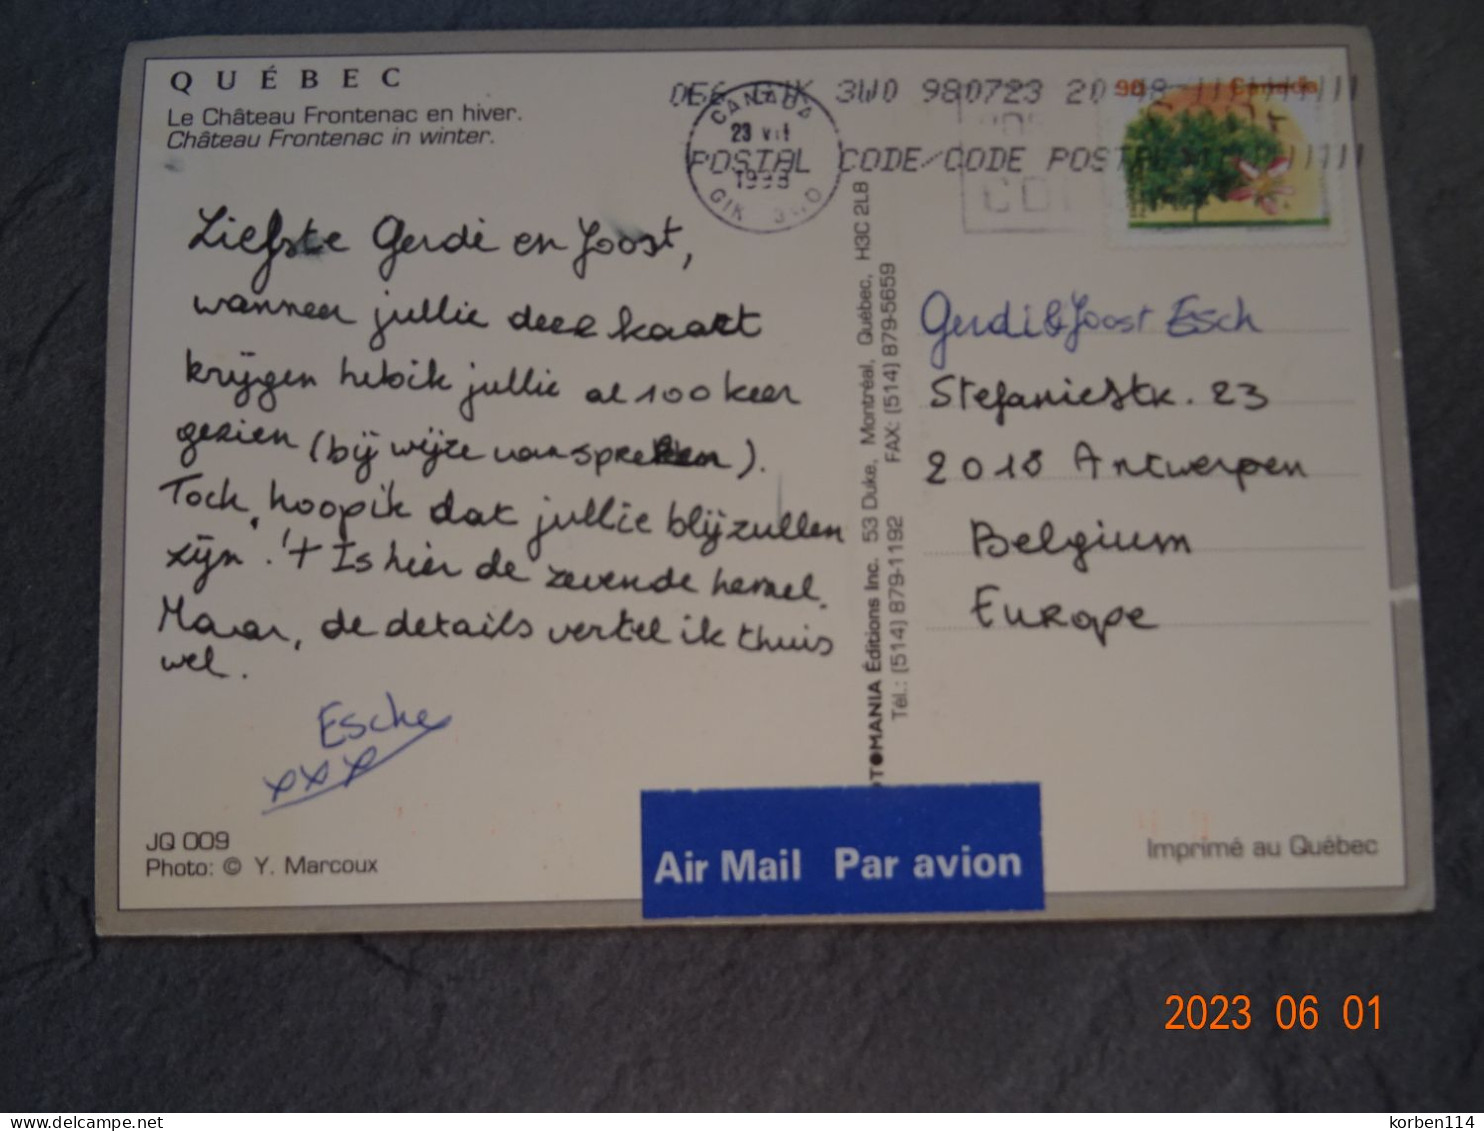 QUÉBEC
Le Château Frontenac en hiver.
Château Frontenac in winter.
Liefste Gerdi en Joost,
wanneer jullie deze kaart
krijgen heb ik jullie al 100 keer
gezien (bij wijze van spreken).
Toch, hoop ik dat jullie blij zullen
zijn. 't Is hier de zevende hemel.
Maar, de details vertel ik thuis
wel.
Esche
xxx
JQ 009
Photo: © Y. Marcoux
G1K 3W0 980723 20
POSTAL CODE/CODE POSTAL
CANADA
23 VII
1998
G1K 3W0
90 Canada
TOMANIA Éditions Inc. 53 Duke, Montréal, Québec, H3C 2L8
Tél.: (514) 879-1192 FAX: (514) 879-5659
Gerdi & Joost Esch
Stefaniestr. 23
2018 Antwerpen
Belgium
Europe
Air Mail Par avion
Imprimé au Québec
2023 06 01
korben114